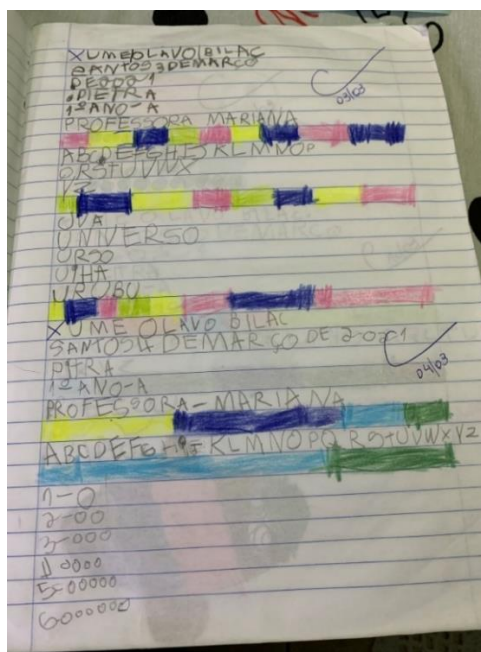 XUMEOLAVO BILAC
SANTOS3DEMARÇO
DE2021
PIETRA
1ºANO-A
03/03
PROFESSORA MARIANA
ABCDEFGHIJKLMNOP
QRSTUVWX
YZ
UVA
UNIVERSO
URSO
UNHA
UROBU
XUME OLAVO BILAC
SANTOS4DEMARÇO DE 2021
PITRA
04/03
1ºANO-A
PROFESSORA-MARIANA
ABCDEFGHIJKLMNOPQRSTUVWXYZ
1-O
2-OO
3-OOO
4OOOO
5-OOOOO
6OOOOOO